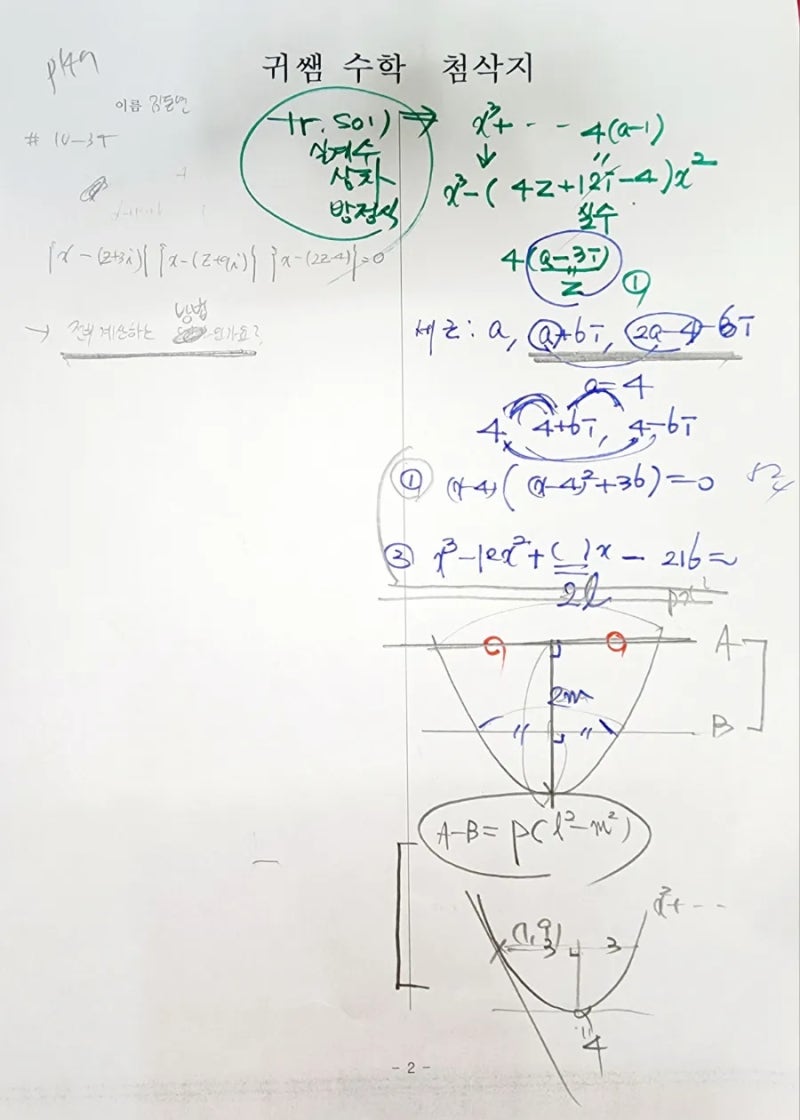 귀쌤 수학 첨삭지
p149
이름
# 10-3
{x-(z+3i)}{x-(z+9i)}{x-(2z-4)}=0
→ 전부 계산하는 방법 인가요?
tr. sol) ⇒
실계수
삼차
방정식
x³+ - - 4(a-1)
↓ "
x³-( 4z+12i-4)x²
실수
4(a-3i)
"
z ①
세 근: a, a+6i, 2a-4-6i
a=4
4, 4+6i, 4-6i
① (x-4)((x-4)²+36)=0
③ x³-12x²+( )x- 216=
2l
px²
A
2m
B
" "
A-B= p(l²-m²)
x²+ - -
(1,9)
3 3
a
"
4
- 2 -